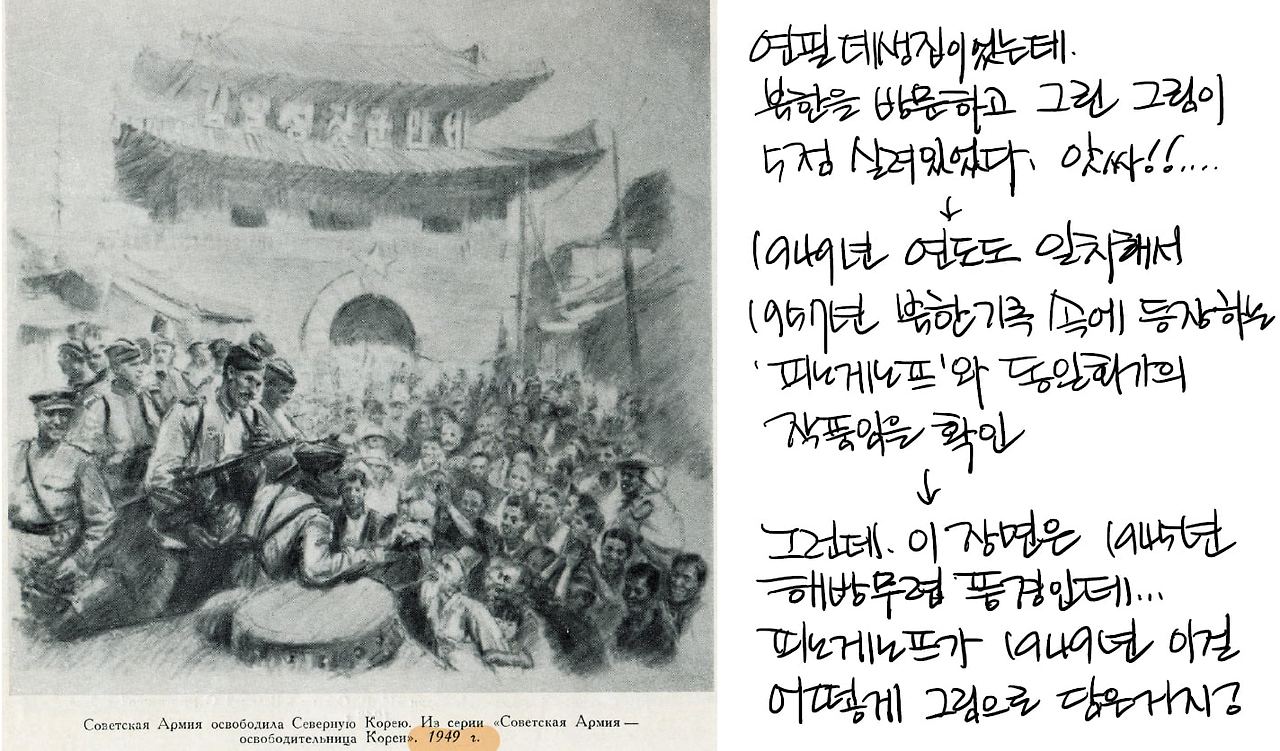 김일성장군만세
Советская Армия освободила Северную Корею. Из серии «Советская Армия —
освободительница Кореи». 1949 г.
연필 데생집이었는데.
북한을 방문하고 그린 그림이
5점 실려있었다. 앗싸!!....
↓
1949년 연도도 일치해서
1957년 북한기록 속에 등장하는
'피노게노프'와 동일화가의
작품임을 확인
↓
그런데. 이 장면은 1945년
해방무렵 풍경인데...
피노게노프가 1949년 이걸
어떻게 그림으로 담은거지?